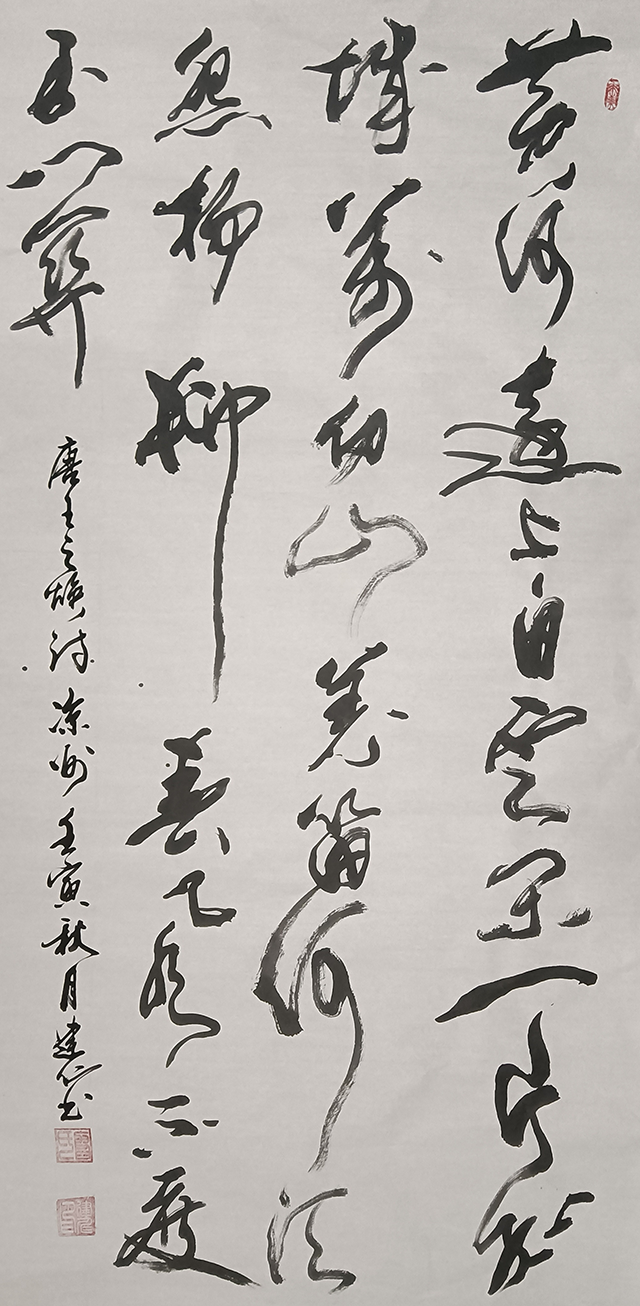 黄河遠上白雲間一片孤
城萬仞山羌笛何須
怨楊柳春風不度
玉門關
唐王之焕诗凉州壬寅秋月建书